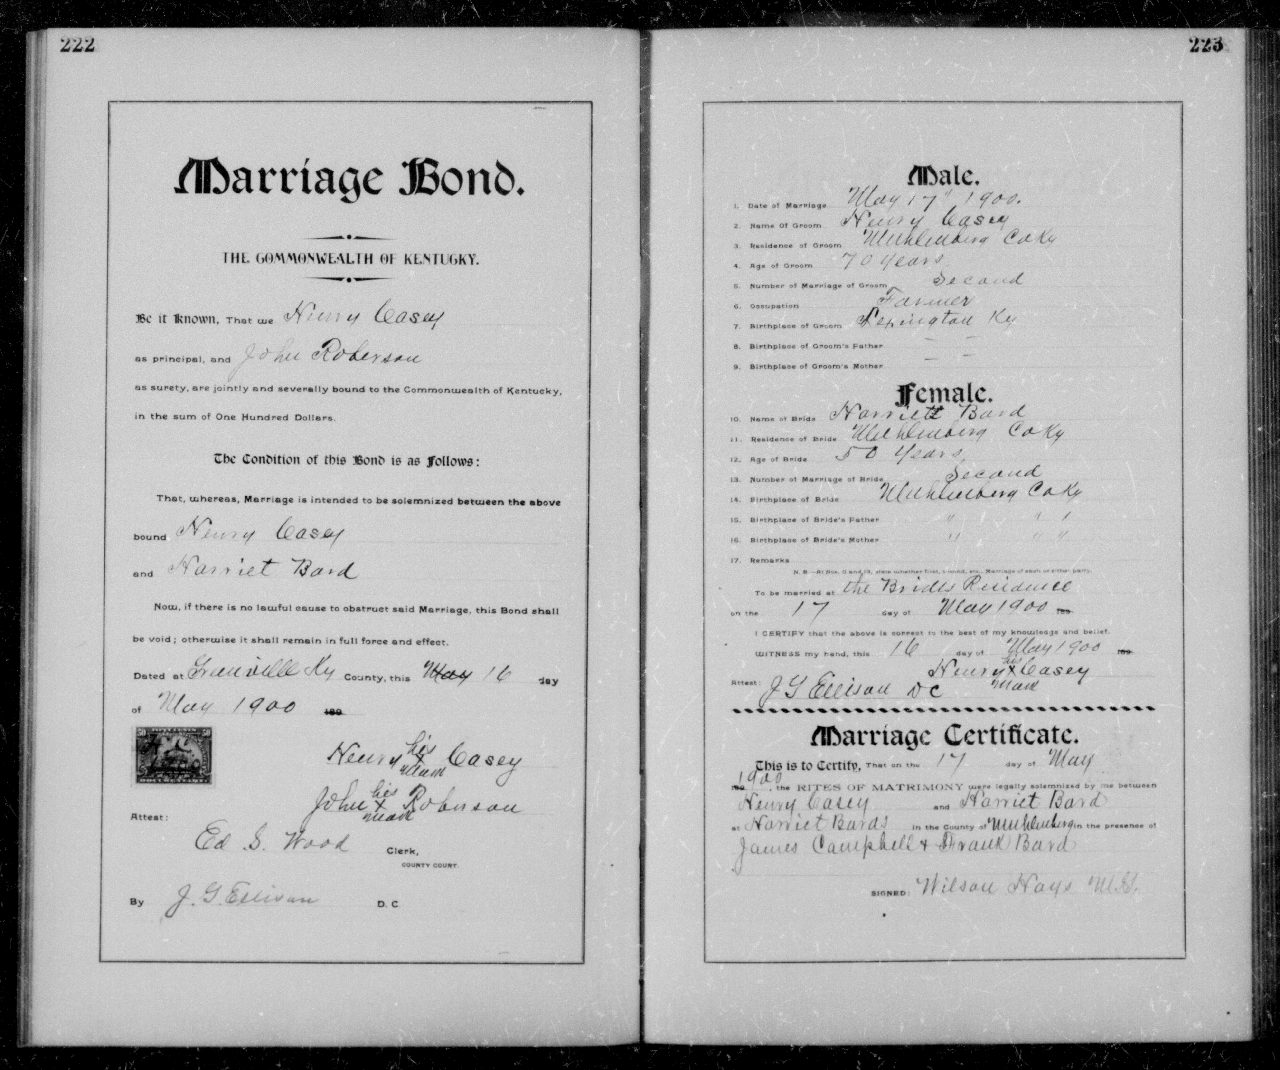 222
Marriage Bond.
THE COMMONWEALTH OF KENTUCKY.
Be it Known, That we Henry Casey
as principal, and John Roberson
as surety, are jointly and severally bound to the Commonwealth of Kentucky,
in the sum of One Hundred Dollars.
The Condition of this Bond is as Follows:
That, whereas, Marriage is intended to be solemnized between the above
bound Henry Casey
and Harriet Bard
Now, if there is no lawful cause to obstruct said Marriage, this Bond shall
be void; otherwise it shall remain in full force and effect.
Dated at Greenville Ky County, this May 16 day
of May 1900 189
Henry his x mark Casey
John his x mark Roberson
Attest:
Ed S. Wood Clerk,
COUNTY COURT.
By J. G. Ellison D. C.
223
Male.
1. Date of Marriage May 17" 1900.
2. Name Of Groom Henry Casey
3. Residence of Groom Muhlenberg Co Ky
4. Age of Groom 70 years
5. Number of Marriage of Groom Second
6. Occupation Farmer
7. Birthplace of Groom Lexington Ky
8. Birthplace of Groom's Father — —
9. Birthplace of Groom's Mother — —
Female.
10. Name of Bride Harriett Bard
11. Residence of Bride Muhlenberg Co Ky
12. Age of Bride 50 years
13. Number of Marriage of Bride Second
14. Birthplace of Bride Muhlenberg Co Ky
15. Birthplace of Bride's Father " " "
16. Birthplace of Bride's Mother " " "
17. Remarks
N. B.—At Nos. 5 and 13, state whether first, second, etc., Marriage of each or either party.
To be married at the Brides Residence
on the 17 day of May 1900 189
I CERTIFY that the above is correct to the best of my knowledge and belief.
WITNESS my hand, this 16 day of May 1900 189
Henry his x mark Casey
Attest: J G Ellison DC
Marriage Certificate.
This is to Certify, That on the 17 day of May
1900 189 , the RITES OF MATRIMONY were legally solemnized by me between
Henry Casey and Harriet Bard
at Harriet Bards in the County of Muhlenberg in the presence of
James Campbell & Frank Bard
SIGNED: Wilson Hays M.G.